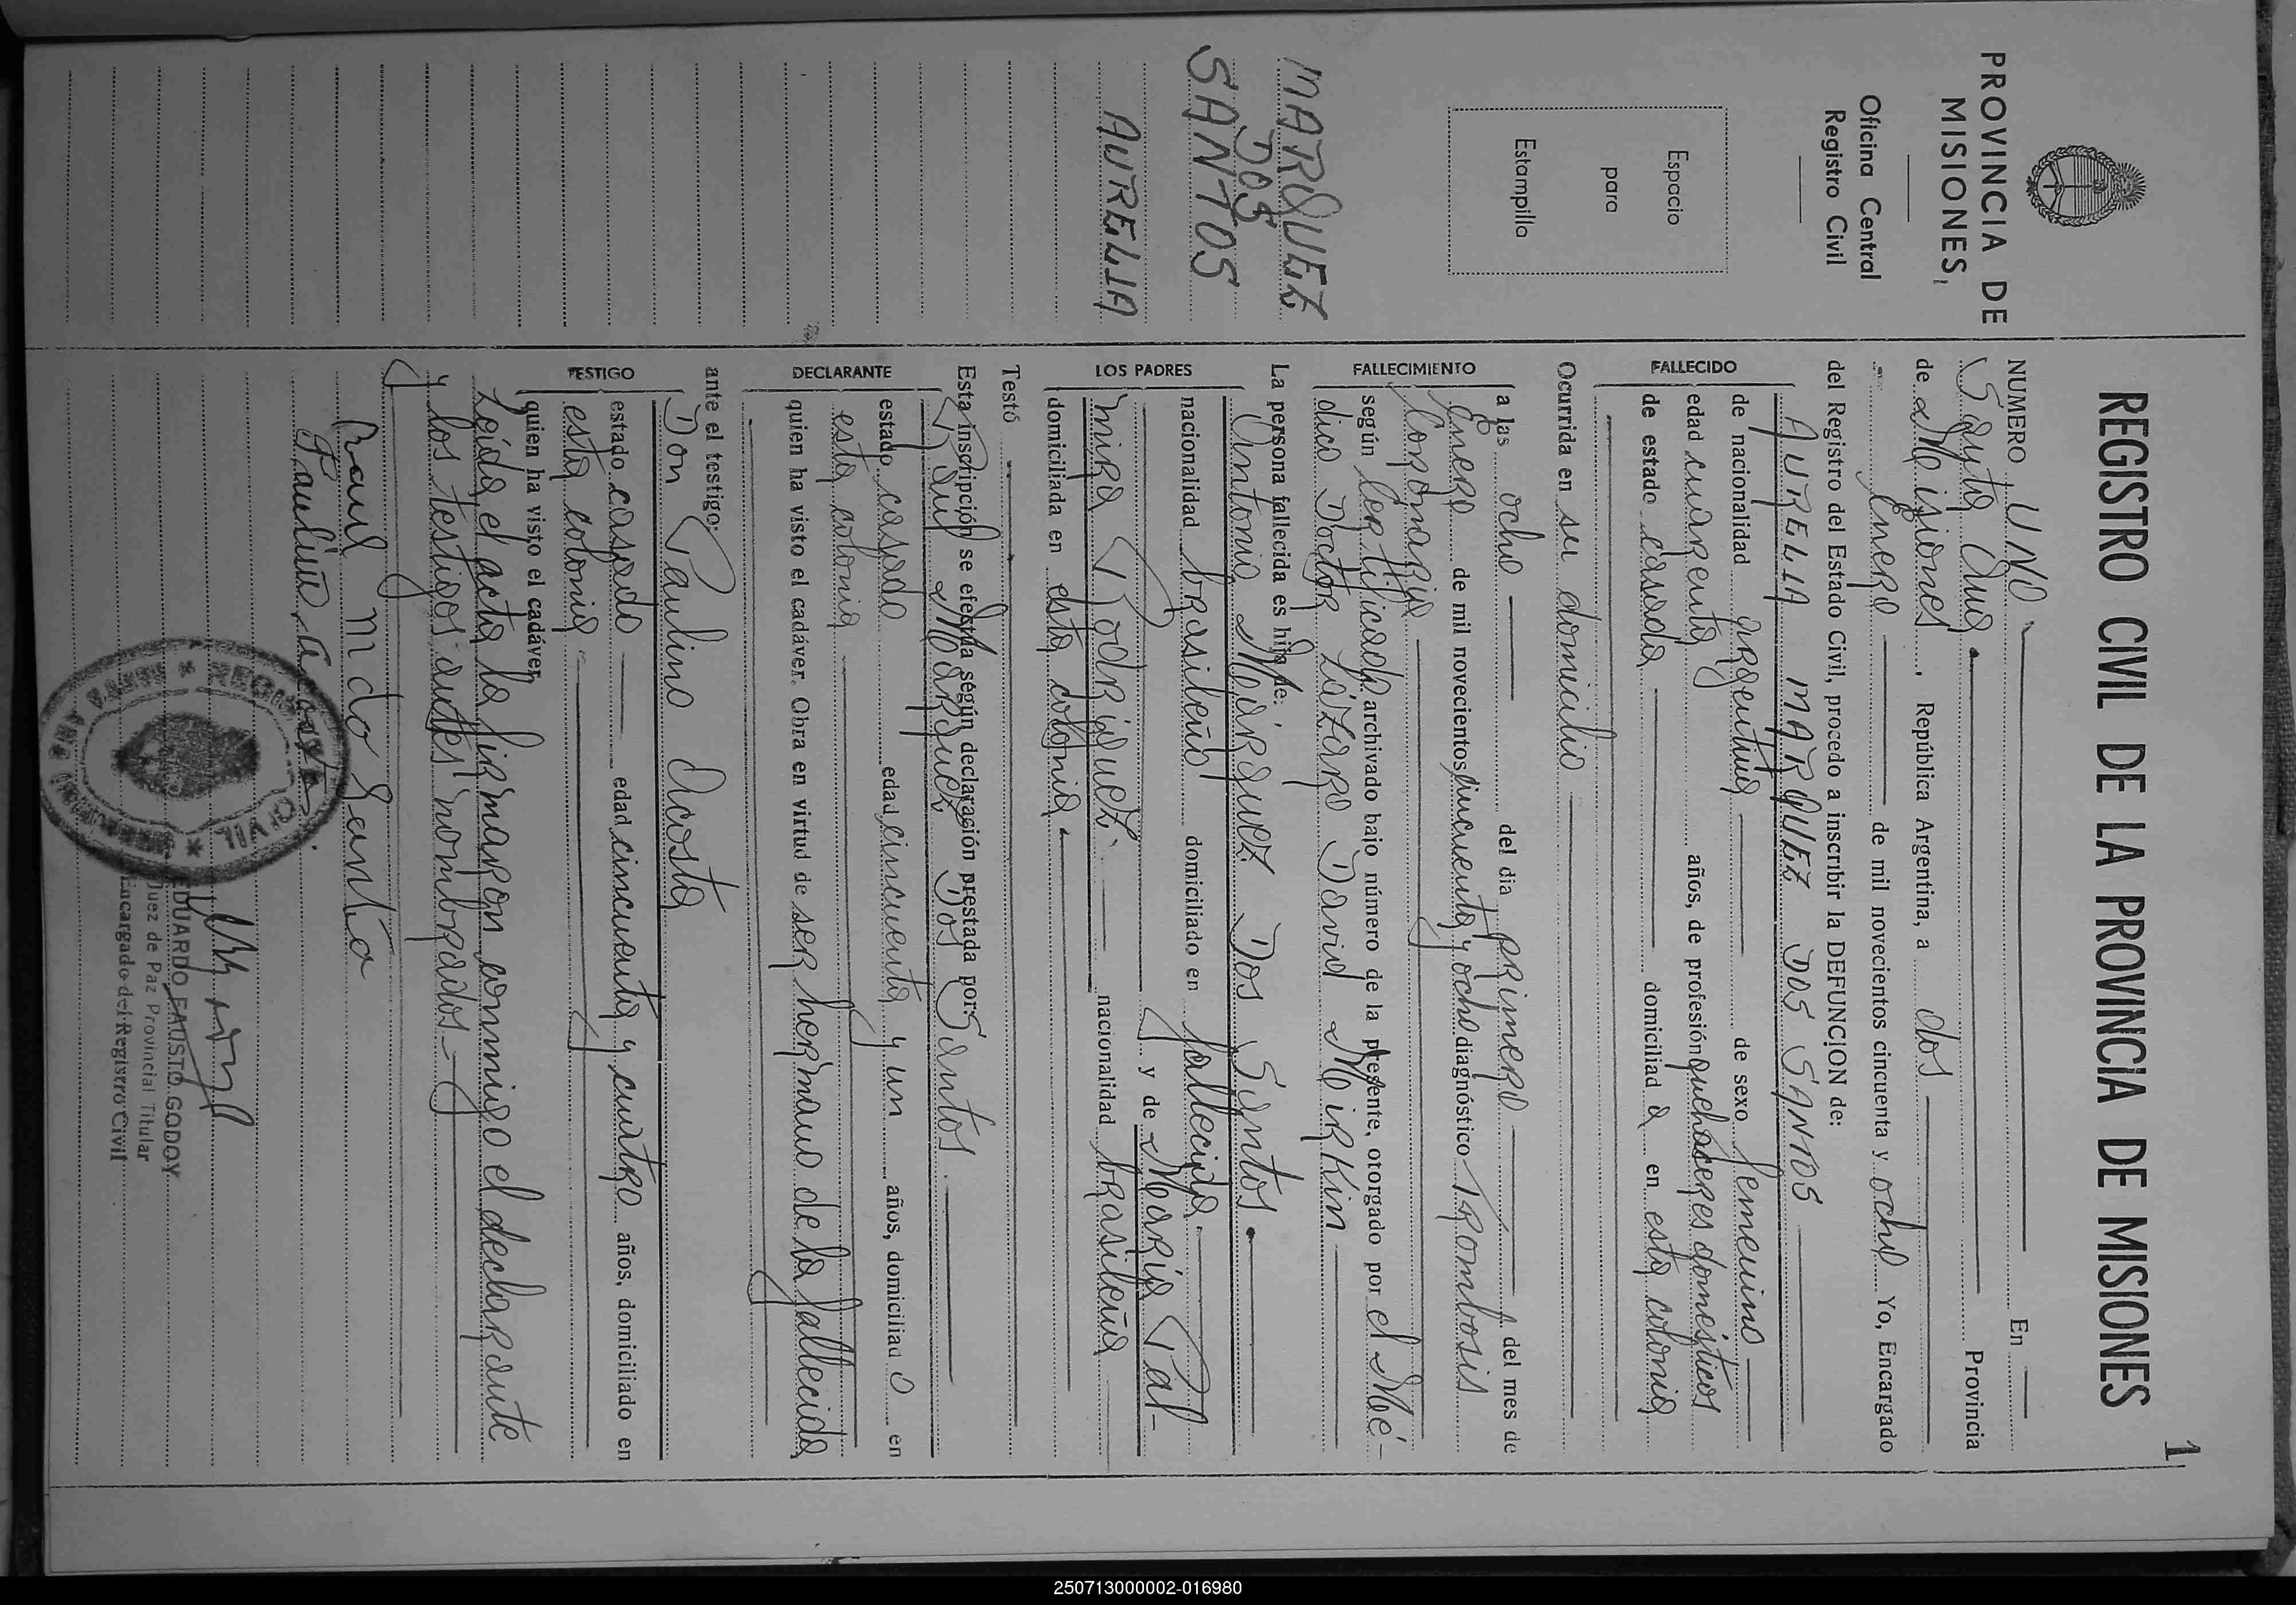 1
REGISTRO CIVIL DE LA PROVINCIA DE MISIONES
PROVINCIA DE
MISIONES,
Oficina Central
Registro Civil
Espacio
para
Estampilla
MARQUEZ
DOS
SANTOS
AURELIA
NUMERO UNO. En
Santa Ana Provincia
de Misiones, República Argentina, a dos
Enero de mil novecientos cincuenta y ocho Yo, Encargado
del Registro del Estado Civil, procedo a inscribir la DEFUNCION de:
FALLECIDO
AURELIA MARQUEZ DOS SANTOS
de nacionalidad argentina de sexo femenino
edad cuarenta años, de profesión quehaceres domésticos
de estado casada domiciliad a en esta colonia
Ocurrida en su domicilio
FALLECIMIENTO
a las ocho del dia primero del mes de
Enero de mil novecientos cincuenta y ocho diagnóstico Trombosis
Coronaria
según certificado archivado bajo número de la presente, otorgado por el Mé-
dico Doctor Lázaro David Mirkin
La persona fallecida es hija de:
LOS PADRES
Antonio Márquez Dos Santos.
nacionalidad brasileño domiciliado en fallecido.
y de María Pal-
mira Rodriguez. nacionalidad brasileña
domiciliada en esta colonia.
Testó
Esta inscripción se efectúa según declaración prestada por:
DECLARANTE
Raul Márquez Dos Santos.
estado casado edad cincuenta y un años, domiciliad o en
esta colonia
quien ha visto el cadáver. Obra en virtud de ser hermano de la fallecida
ante el testigo:
TESTIGO
Don Paulino Acosta
estado casado edad cincuenta y cuatro años, domiciliado en
esta colonia
quien ha visto el cadáver.
Leída el acta la firmaron conmigo el declarante
y los testigos antes nombrados.
Raul m do Santo
Paulino Acosta
REGISTRO CIVIL
EDUARDO FAUSTO GODOY
Juez de Paz Provincial Titular
Encargado del Registro Civil
250713000002-016980